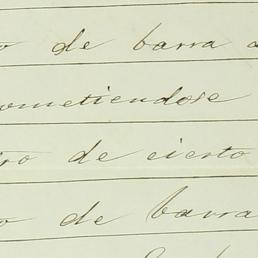 o de barra a
ometiendose
ro de cierto
o de barra